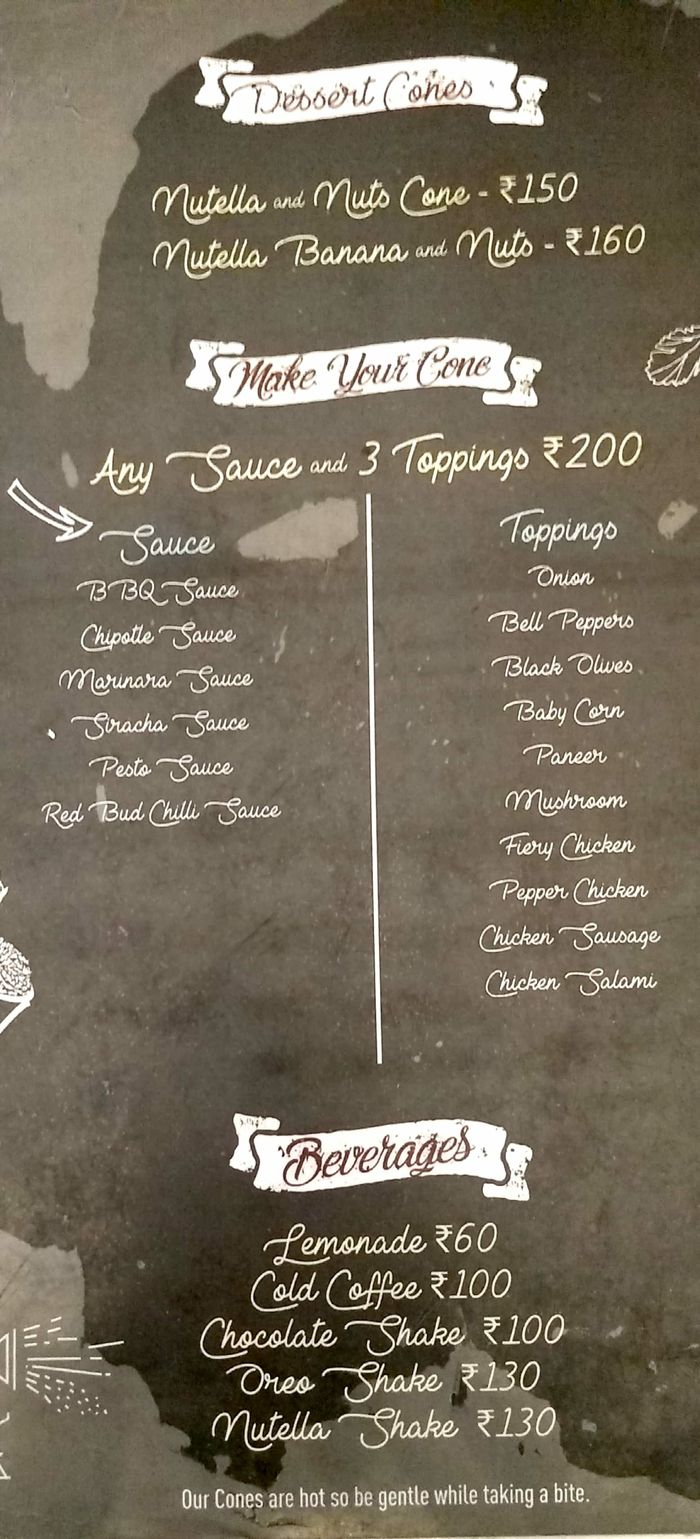 Dessert Cones
Nutella and Nuts Cone - ₹150
Nutella Banana and Nuts - ₹160
Make Your Cone
Any Sauce and 3 Toppings ₹200
Sauce
BBQ Sauce
Chipotle Sauce
Marinara Sauce
Siracha Sauce
Pesto Sauce
Red Bud Chilli Sauce
Toppings
Onion
Bell Peppers
Black Olives
Baby Corn
Paneer
Mushroom
Fiery Chicken
Pepper Chicken
Chicken Sausage
Chicken Salami
Beverages
Lemonade ₹60
Cold Coffee ₹100
Chocolate Shake ₹100
Oreo Shake ₹130
Nutella Shake ₹130
Our Cones are hot so be gentle while taking a bite.